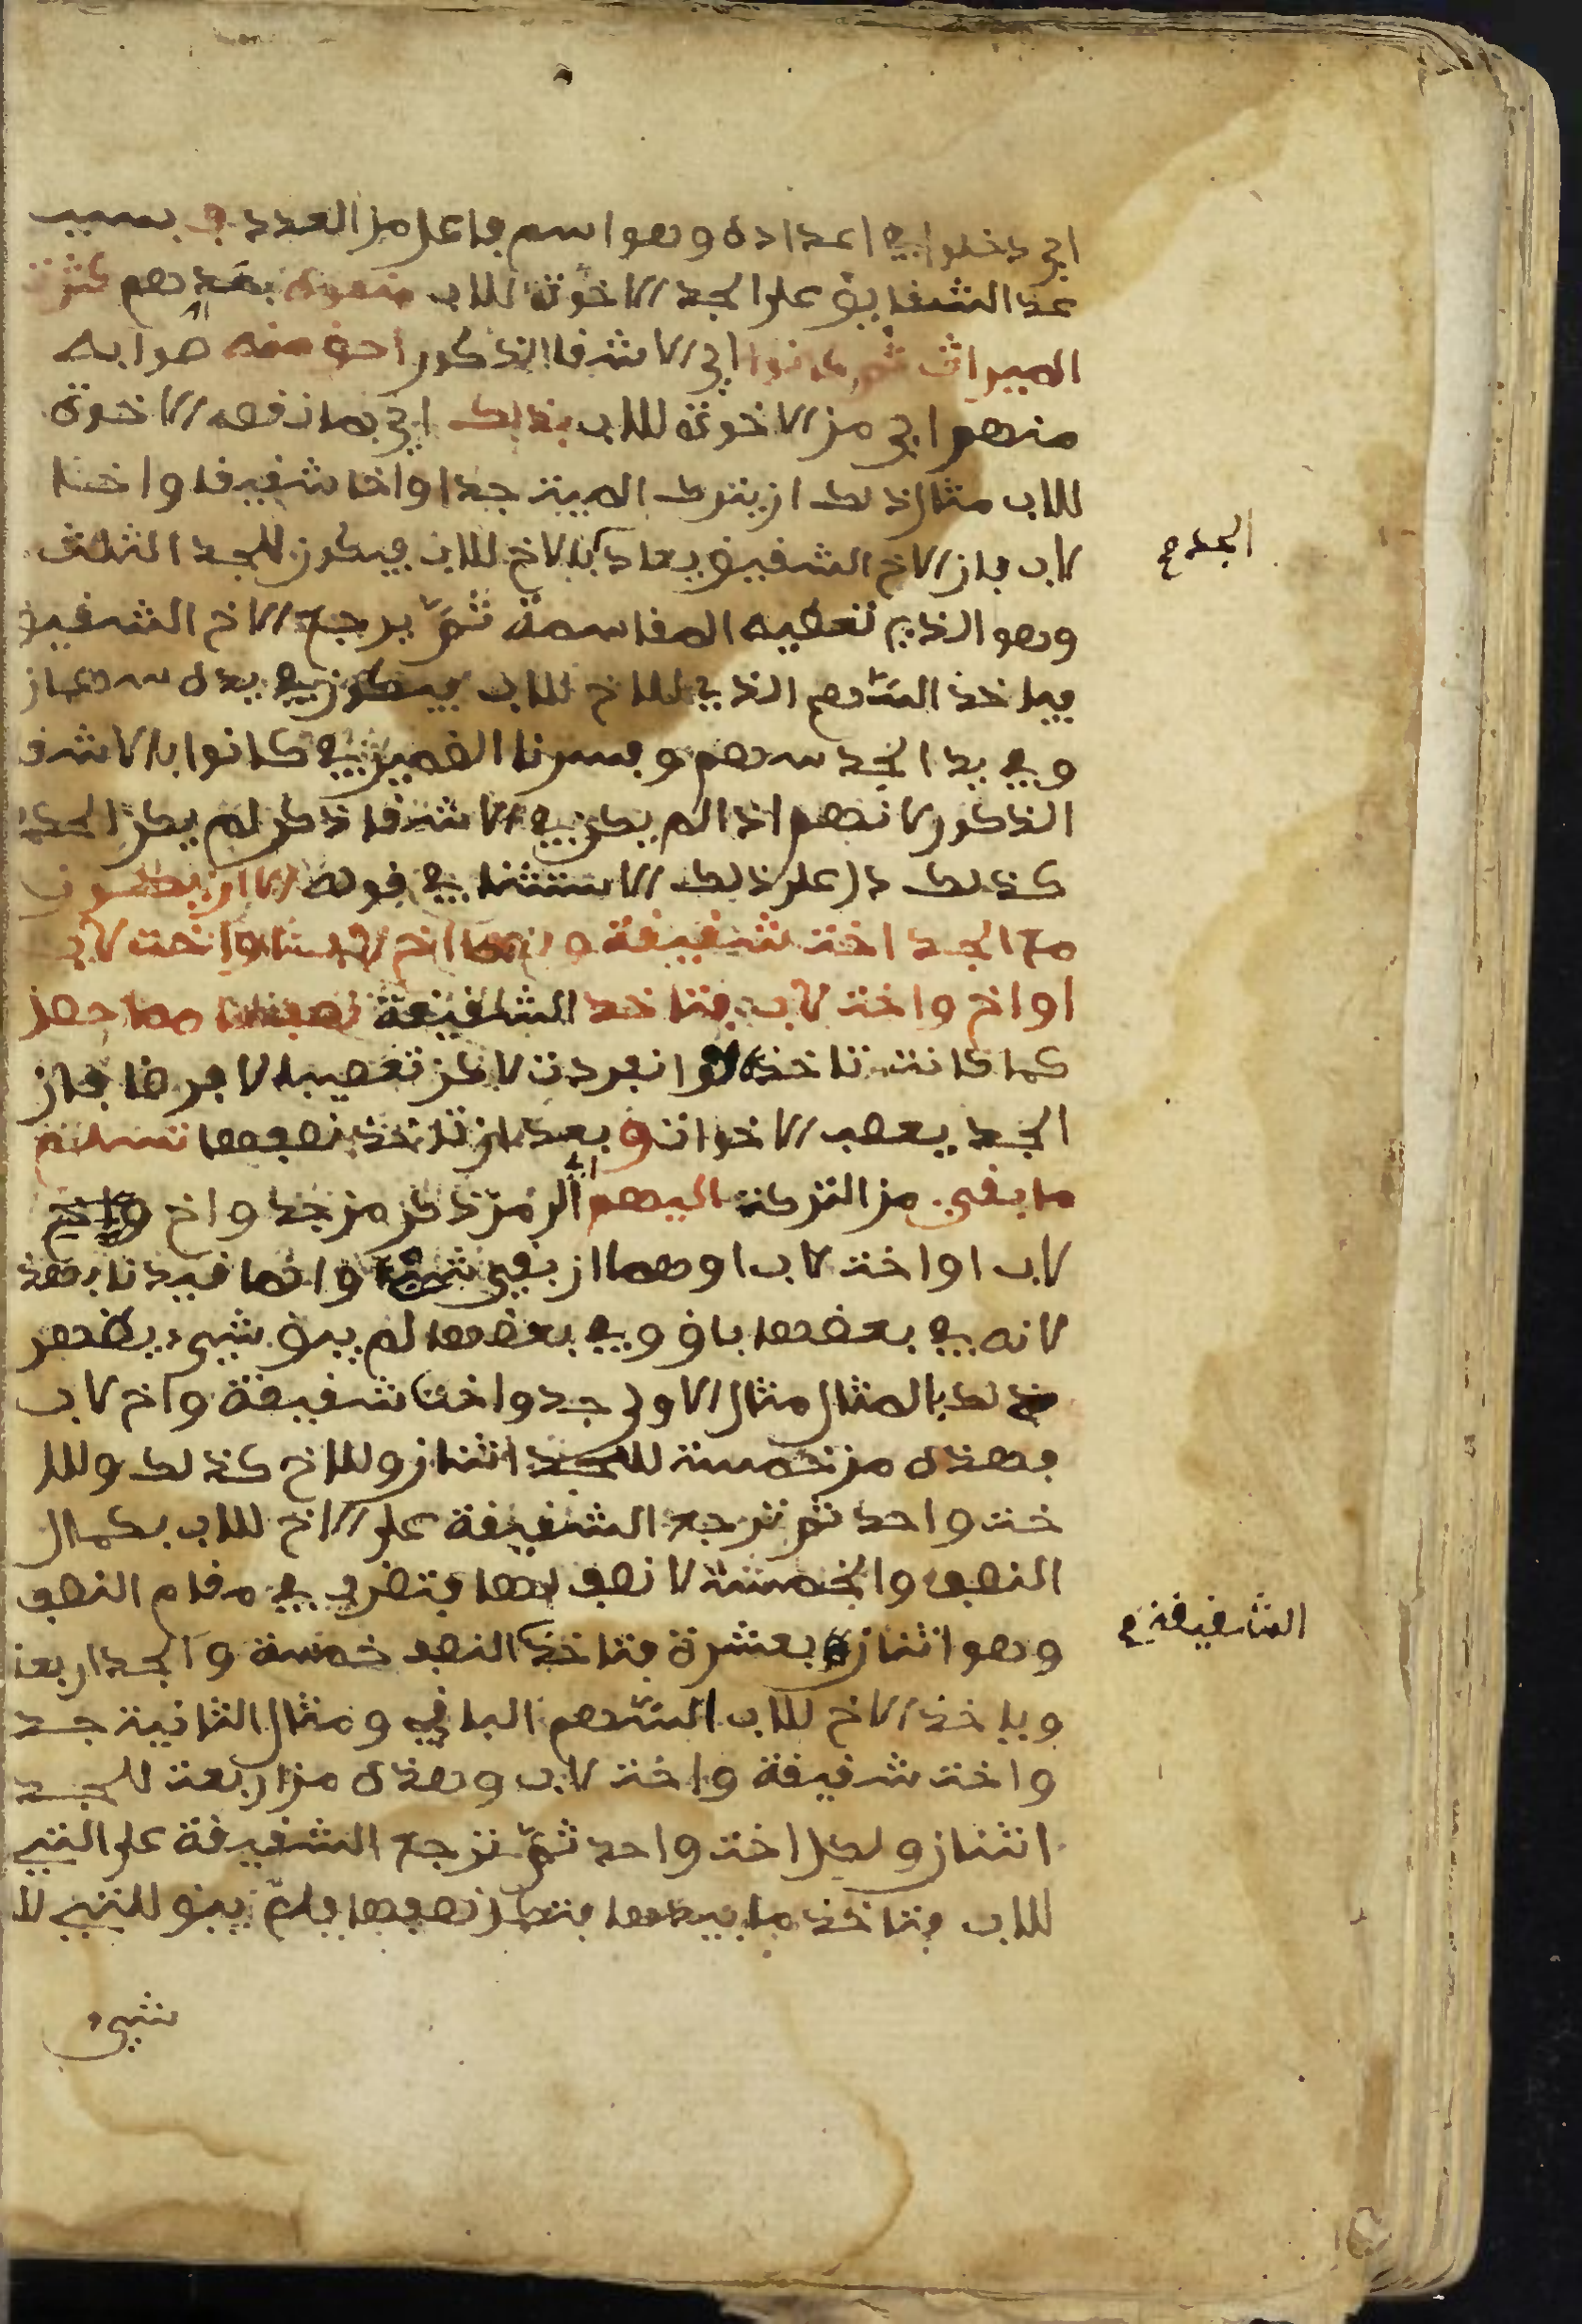 اي دخلوا في اعداده وهو اسم فاعل من العدد فبسبب
عد الشقايق على الجد الاخوة للاب منعوه بعدهم كثرة
الميراث ثم كانوا اي الاشقا الذكور احق منه صوابه
منهم اي من الاخوة للاب بذلك اي بما نقصه الاخوة
للاب مثال ذلك ان يترك الميت جدا واخا شقيقا واخا
لاب فان الاخ الشقيق يعاد بالاخ للاب فيكون للجد الثلث
وهو الذي تعطيه المقاسمة ثم يرجع الاخ الشقيق
فياخذ السهم الذي للاخ للاب فيكون في يده سهمان
وفي يد الجد سهم وفسرنا الضمير في كانوا بالاشقا
الذكور لانهم اذا لم يكن في الاشقا ذكر لم يكن الحكم
كذلك دل على ذلك الاستثنا في قوله الا ان يكون
مع الجد اخت شقيقة ولها اخ لاب او اخت لاب
او اخ واخت لاب فتاخذ الشقيقة نصفها مما حصل
كما كانت تاخذه لو انفردت لاكن تعصيبا لا فرضا فان
الجد يعصب الاخوات و بعد ان تاخذ نصفها تسلم
ما بقي من التركة اليهم اي الى من ذكر من جد واخ
لاب او اخت لاب او هما ان بقي شيء وانما قيدنا بهذا
لانه في بعضها باق وفي بعضها لم يبق شيء يظهر
ذلك بالمثال مثال الاولى جد واخت شقيقة واخ لاب
فهذه من خمسة للجد اثنان وللاخ كذلك وللا
خت واحد ثم ترجع الشقيقة على الاخ للاب بكمال
النصف والخمسة لا نصف لها فتضرب في مقام النصف
وهو اثنان بعشرة فتاخذ النصف خمسة والجد اربعة
وياخذ الاخ للاب السهم الباقي ومثال الثانية جد
واخت شقيقة واخت لاب وهذه من اربعة للجد
اثنان ولكل اخت واحد ثم ترجع الشقيقة على التي
للاب فتاخذ ما بيدها فتكمل نصفها فلم يبق للتي لا
شيء
الجد ع
الشقيقة ع